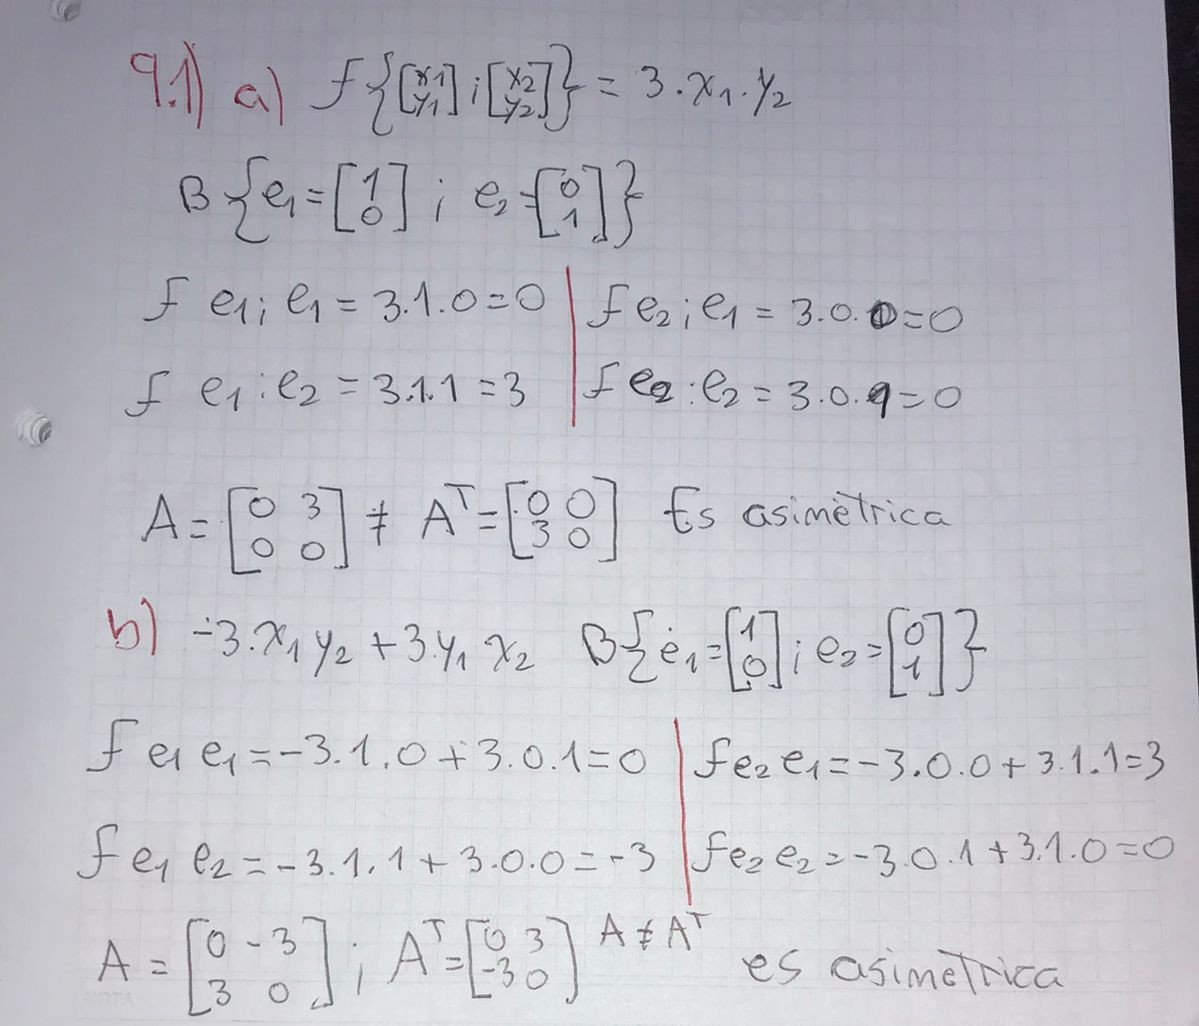 9.1) a) f{[x1 y1] ; [x2 y2]} = 3.x₁.y₂
B{e₁=[1 0] ; e₂=[0 1]}
f e₁; e₁ = 3.1.0=0 | f e₂; e₁ = 3.0.0=0
f e₁:e₂ = 3.1.1=3 | f e₂:e₂ = 3.0.1=0
A = [0 3; 0 0] ≠ Aᵀ=[0 0; 3 0] Es asimètrica
b) -3.x₁y₂+3.y₁x₂ B{e₁=[1 0] ; e₂=[0 1]}
f e₁ e₁=-3.1.0+3.0.1=0 | f e₂ e₁=-3.0.0+3.1.1=3
f e₁ e₂=-3.1.1+3.0.0=-3 | f e₂ e₂=-3.0.1+3.1.0=0
A = [0 -3; 3 0] ; Aᵀ=[0 3; -3 0] A≠Aᵀ es asimètrica
NOTA